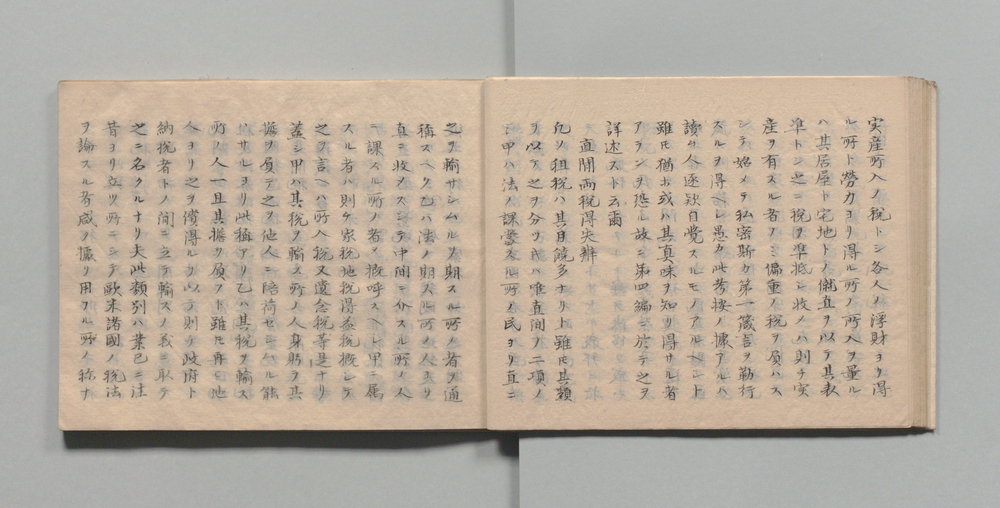 実産所入ノ税トシ各人ノ浮財ヨリ得
ル所ト勞力ヨリ得ル所ノ所入ヲ量ル
ハ其居屋ト宅地トノ僦直ヲ以テ其表
準トシ之ニ税ヲ準抵シ收ムハ則チ実
産ヲ有スル者ノミ偏重ノ税ヲ負ハス
シテ始メテ私密斯カ第一箴言ヲ勒行
スルヲ得ヘシ愚カ此考按ノ據アルハ
讀 人逐款自覺スルモノアルヘシト
雖𪜈猶ホ或ハ其真味ヲ知リ得サル者
アランヲ恐ル故ニ第四編ニ於テ之ヲ
詳述スト云爾
直間両税得失辨
凡ソ租税ハ其目饒多ナリト雖𪜈其類
ヲ以テ之ヲ分テハ唯直間ノ二項ノ
ミ甲ハ法ノ課棠スル所ノ民ヨリ直ニ
之ヲ輸サシムルヲ期スル所ノ者ヲ通
稱スヘク乙ハ法ノ期スル所ノ人ヨリ
直ニ收メスシテ中間ニ介スル所ノ人
ニ課スル所ノ者ヲ概呼スヘシ甲ニ属
スル者ハ則チ家税地税得益税概シテ
之ヲ言ヘハ所入税又遺念税等是ナリ
蓋シ甲ハ其税ヲ輸ス所ノ人身躬ヲ其
擔ヲ負テ之ヲ他人ニ陪荷セシムル能
ハサルヨリ此稱アリ乙ハ其税ヲ輸ス
所ノ人一旦其擔ヲ負フト雖𪜈再ヒ他
人ヨリ之ヲ償得ルヲ以テ則チ政府ト
納税者トノ間ニ立テ輸スノ義ニ取テ
之ニ名クルナリ夫此類別ハ葉已ニ注
昔ヨリ立リ所ニシテ歐米諸國ノ税法
ヲ論スル者咸ヲ據リ用フル所ノ称ナ